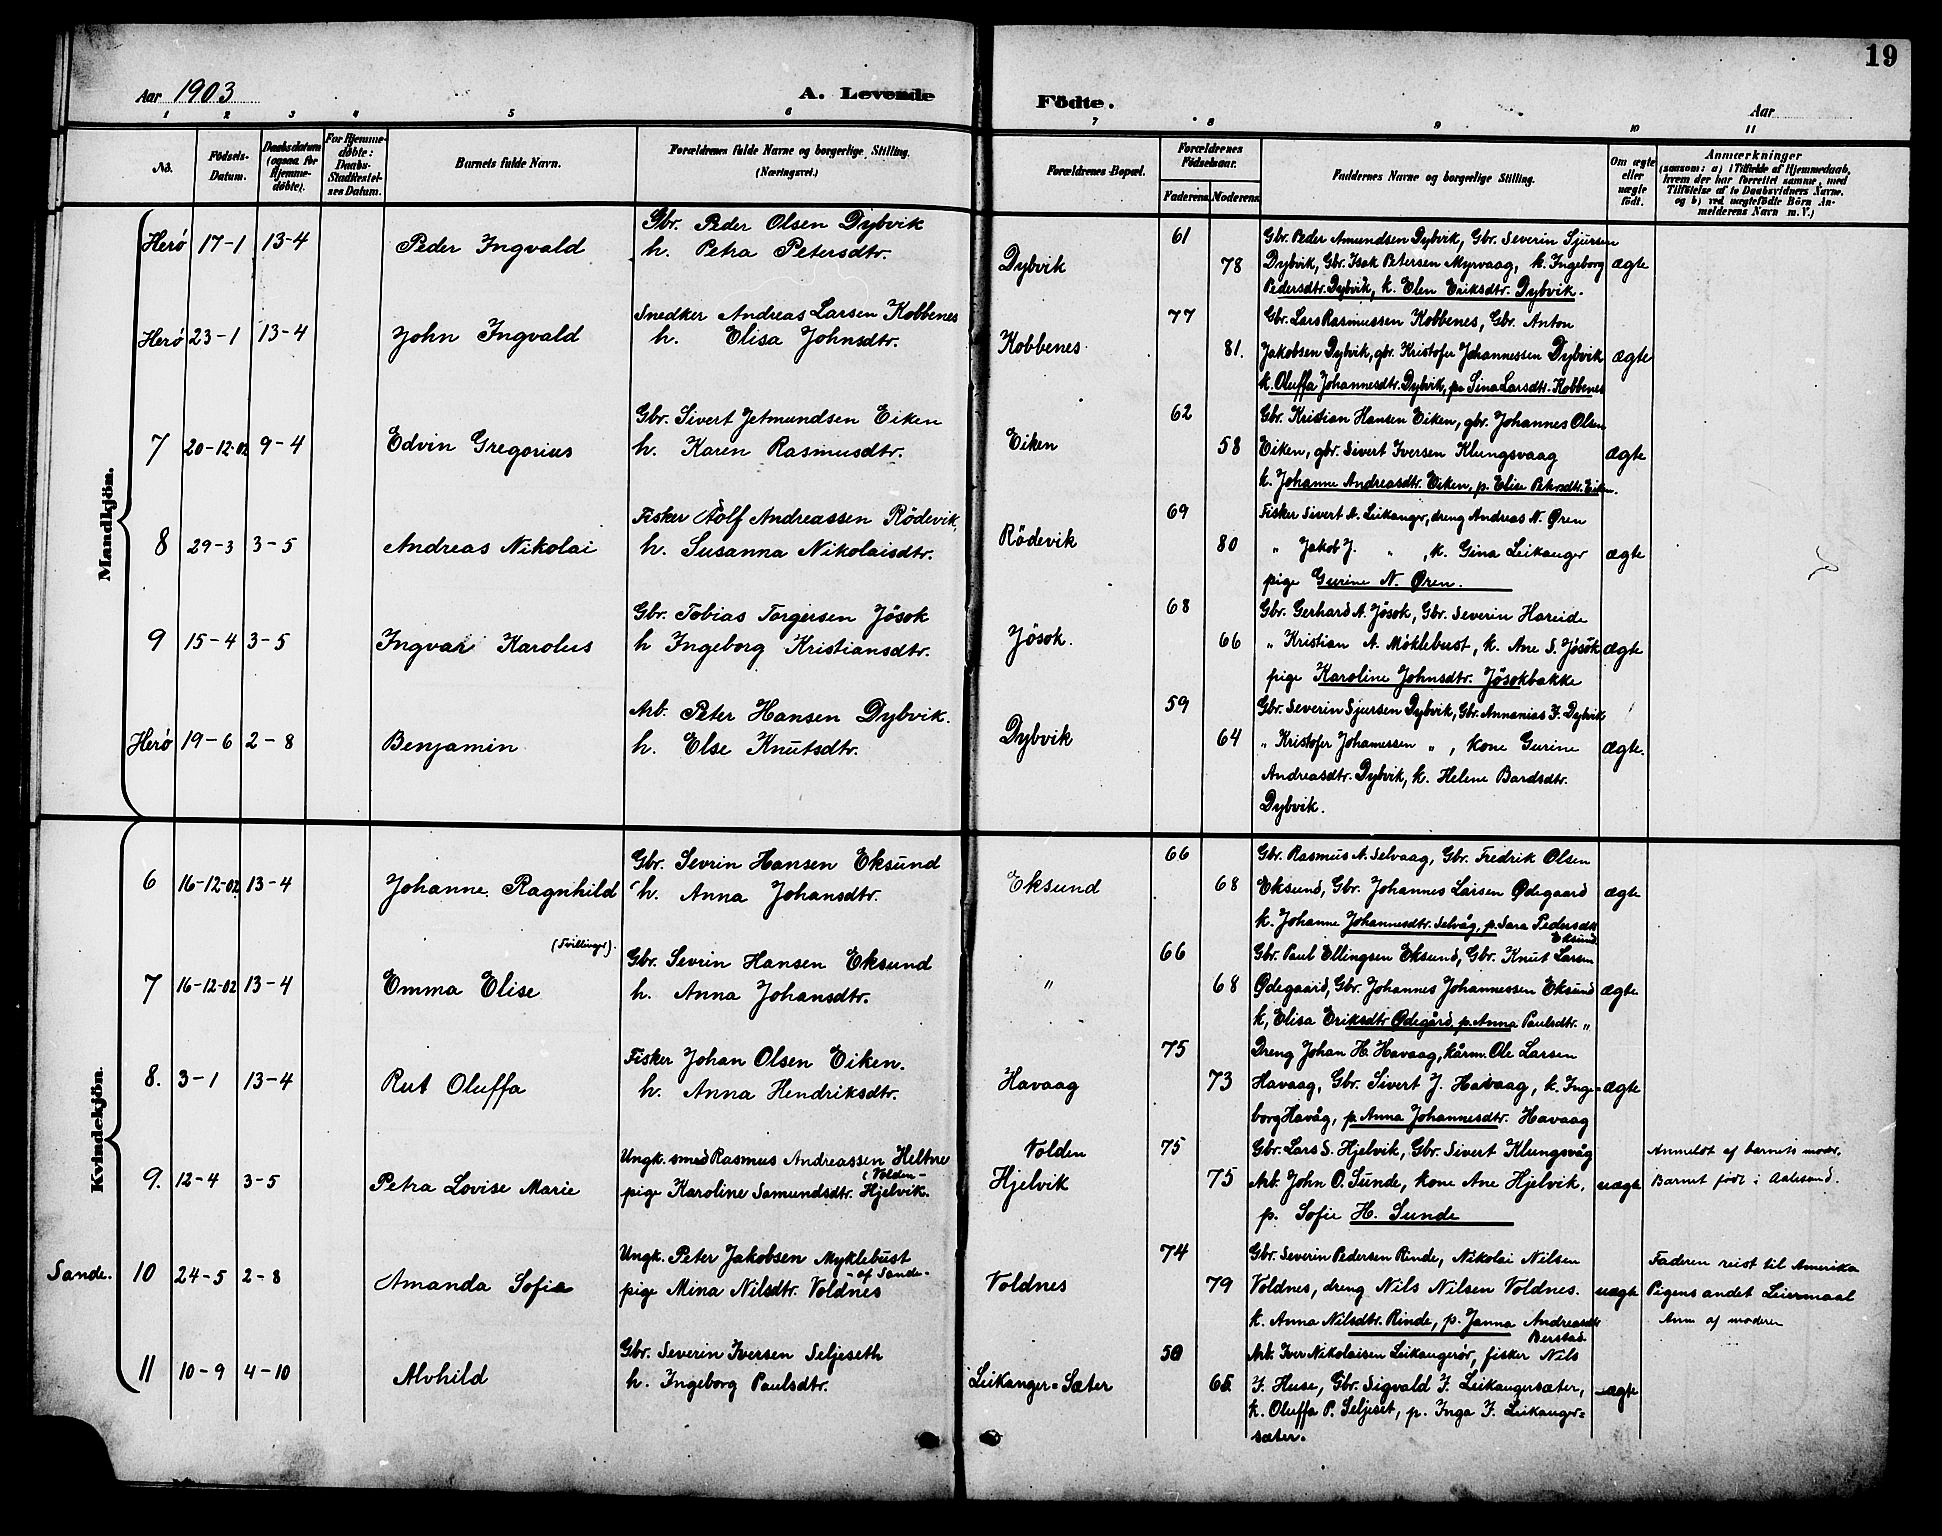 19
Aar 1903
A. Levende
Födte.
Aar
1 2 3 4 5 6 7 8 9 10 11
No.
Födsels-Datum.
Daabsdatum (ogsaa for Hjemme-döbte).
For Hjemme-döbte: Daabs-Stadfæstel-ses Datum.
Barnets fulde Navn.
Forældrenes fulde Navne og borgerlige Stilling. (Næringsvei.)
Forældrenes Bopæl.
Forældrenes Födselsaar.
Faderens. Moderens.
Faddernes Navne og borgerlige Stilling.
Om ægte eller uægte födt.
Anmærkninger
(saasom: a) i Tilfælde af Hjemmedaab,
hvem der har forrettet samme, med
Tilföielse af to Daabsvidners Navne,
og b) ved uægtefödte Börn An-
melderens Navn m. V.)
Mandkjön.
Herö 17-1 13-4 Peder Ingvald
Gbr. Peder Olsen Dybvik
h. Petra Petersdtr.
Dybvik 61 78
Gbr. Peder Amundsen Dybvik, Gbr. Severin Sjursen
Dybvik, Gbr. Isak Petersen Myrvaag, k. Ingeborg ægte
Pedersdtr. Dybvik, k. Elen Eriksdtr. Dybvik.
Herö 23-1 13-4 John Ingvald
Snedker Andreas Larsen Kobbenes
h. Elisa Johnsdtr.
Kobbenes 77 81.
Gbr. Lars Rasmussen Kobbenes, Gbr. Anton
Jakobsen Dybvik, gbr. Kristofer Johannessen Dybvik ægte
k. Oluffa Johannesdtr. Dybvik, p. Sina Larsdtr. Kobbenes
7 20-12-02 9-4 Edvin Gregorius
Gbr. Sivert Jetmundsen Eiken
h. Karen Rasmusdtr.
Eiken 62 58
Gbr. Kristian Hansen Eiken, gbr. Johannes Olsen
Eiken, gbr. Sivert Iversen Klungsvaag ægte
k. Johanne Andreasdtr. Eiken, p. Elise Petersdtr. Eiken.
8 29-3 3-5 Andreas Nikolai
Fisker Rolf Andreassen Rödevik,
h. Susanna Nikolaisdtr.
Rödevik 69 80
Fisker Sivert A. Leikanger, dreng Andreas N. Øren
" Jakob J. " , k. Gina Leikanger ægte
pige Gurine N. Øren.
9 15-4 3-5 Ingvar Karolus
Gbr. Tobias Torgersen Jösok
h Ingeborg Kristiansdtr.
Jösok. 68 66
Gbr. Gerhard A. Jösok, Gbr. Severin Hareide
" Kristian A. Møklebust, k. Ane S. Jösok ægte
pige Karoline Johnsdtr. Jösokbakke
Herö 19-6 2-8 Benjamin
Arb. Peter Hansen Dybvik.
h. Else Knutsdtr.
Dybvik 59 64
Gbr. Severin Sjursen Dybvik, Gbr. Annanias I. Dybvik
" Kristofer Johannessen " , kone Gurine ægte.
Andreasdtr. Dybvik, k. Helene Bardsdtr.
Dybvik.
Kvindekjön.
6 16-12-02 13-4 Johanne Ragnhild
Gbr. Sevrin Hansen Eksund
h. Anna Johansdtr.
Eksund 66 68
Gbr. Rasmus A. Selvaag, Gbr. Fredrik Olsen
Eksund, Gbr. Johannes Larsen Ødegaard ægte
k. Johanne Johannesdtr. Selvåg, p. Sara Pedersdtr.
Eksund
(Tvillinger).
7 16-12-02 13-4 Emma Elise
Gbr. Sevrin Hansen Eksund
h. Anna Johansdtr.
" 66 68
Gbr. Paul Ellingsen Eksund, Gbr. Knut Larsen
Ødegaard, Gbr. Johannes Johannessen Eksund ægte
k, Elisa Eriksdtr Ødegård, p. Anna Paulsdtr. "
8. 3-1 13-4 Rut Oluffa
Fisker Johan Olsen Eiken.
h. Anna Hendriksdtr.
Havaag 75 73
Dreng Johan H. Havaag, kårm. Ole Larsen
Havaag, Gbr. Sivert J. Havaag, k. Inge- ægte
borg Havåg, p. Anna Johannesdtr. Havaag
9. 12-4 3-5 Petra Lovise Marie
Ungk. smed Rasmus Andreassen Heltne
(Volden-
pige Karoline Samundsdtr. Hjelvik.
Volden
Hjelvik 75 75
Gbr. Lars S. Hjelvik, Gbr. Sivert Klungsvåg
Arb. John O. Sunde, kone Ane Hjelvik, uægte
p. Sofie H. Sunde
Anmeldt af barnets moder,
Barnet födt i Aalesund.
Sande. 10 24-5 2-8 Amanda Sofia
Ungk. Peter Jakobsen Myklebust
- af Sande -
pige Mina Nilsdtr. Voldnes
Voldnes 74 79
Gbr. Severin Pedersen Rinde, Nikolai Nilsen
Voldnes, dreng Nils Nilsen Voldnes. uægte
k. Anna Nilsdtr. Rinde, p. Janna Andreasdtr.
Berstad.
Faderen reist til Amerika
Pigens andet Leiermaal
Anm af moderen
11 10-9 4-10 Alvhild
Gbr. Severin Iversen Seljeseth
h. Ingeborg Paulsdtr.
Leikanger=Sæter 65
Arb. Iver Nikolaisen Leikangerör, fisker Nils
I. Huse, Gbr. Sigvald I. Leikangersæter, ægte
k. Oluffa P. Seljeset, p. Inga I. Leikanger=
sæter.